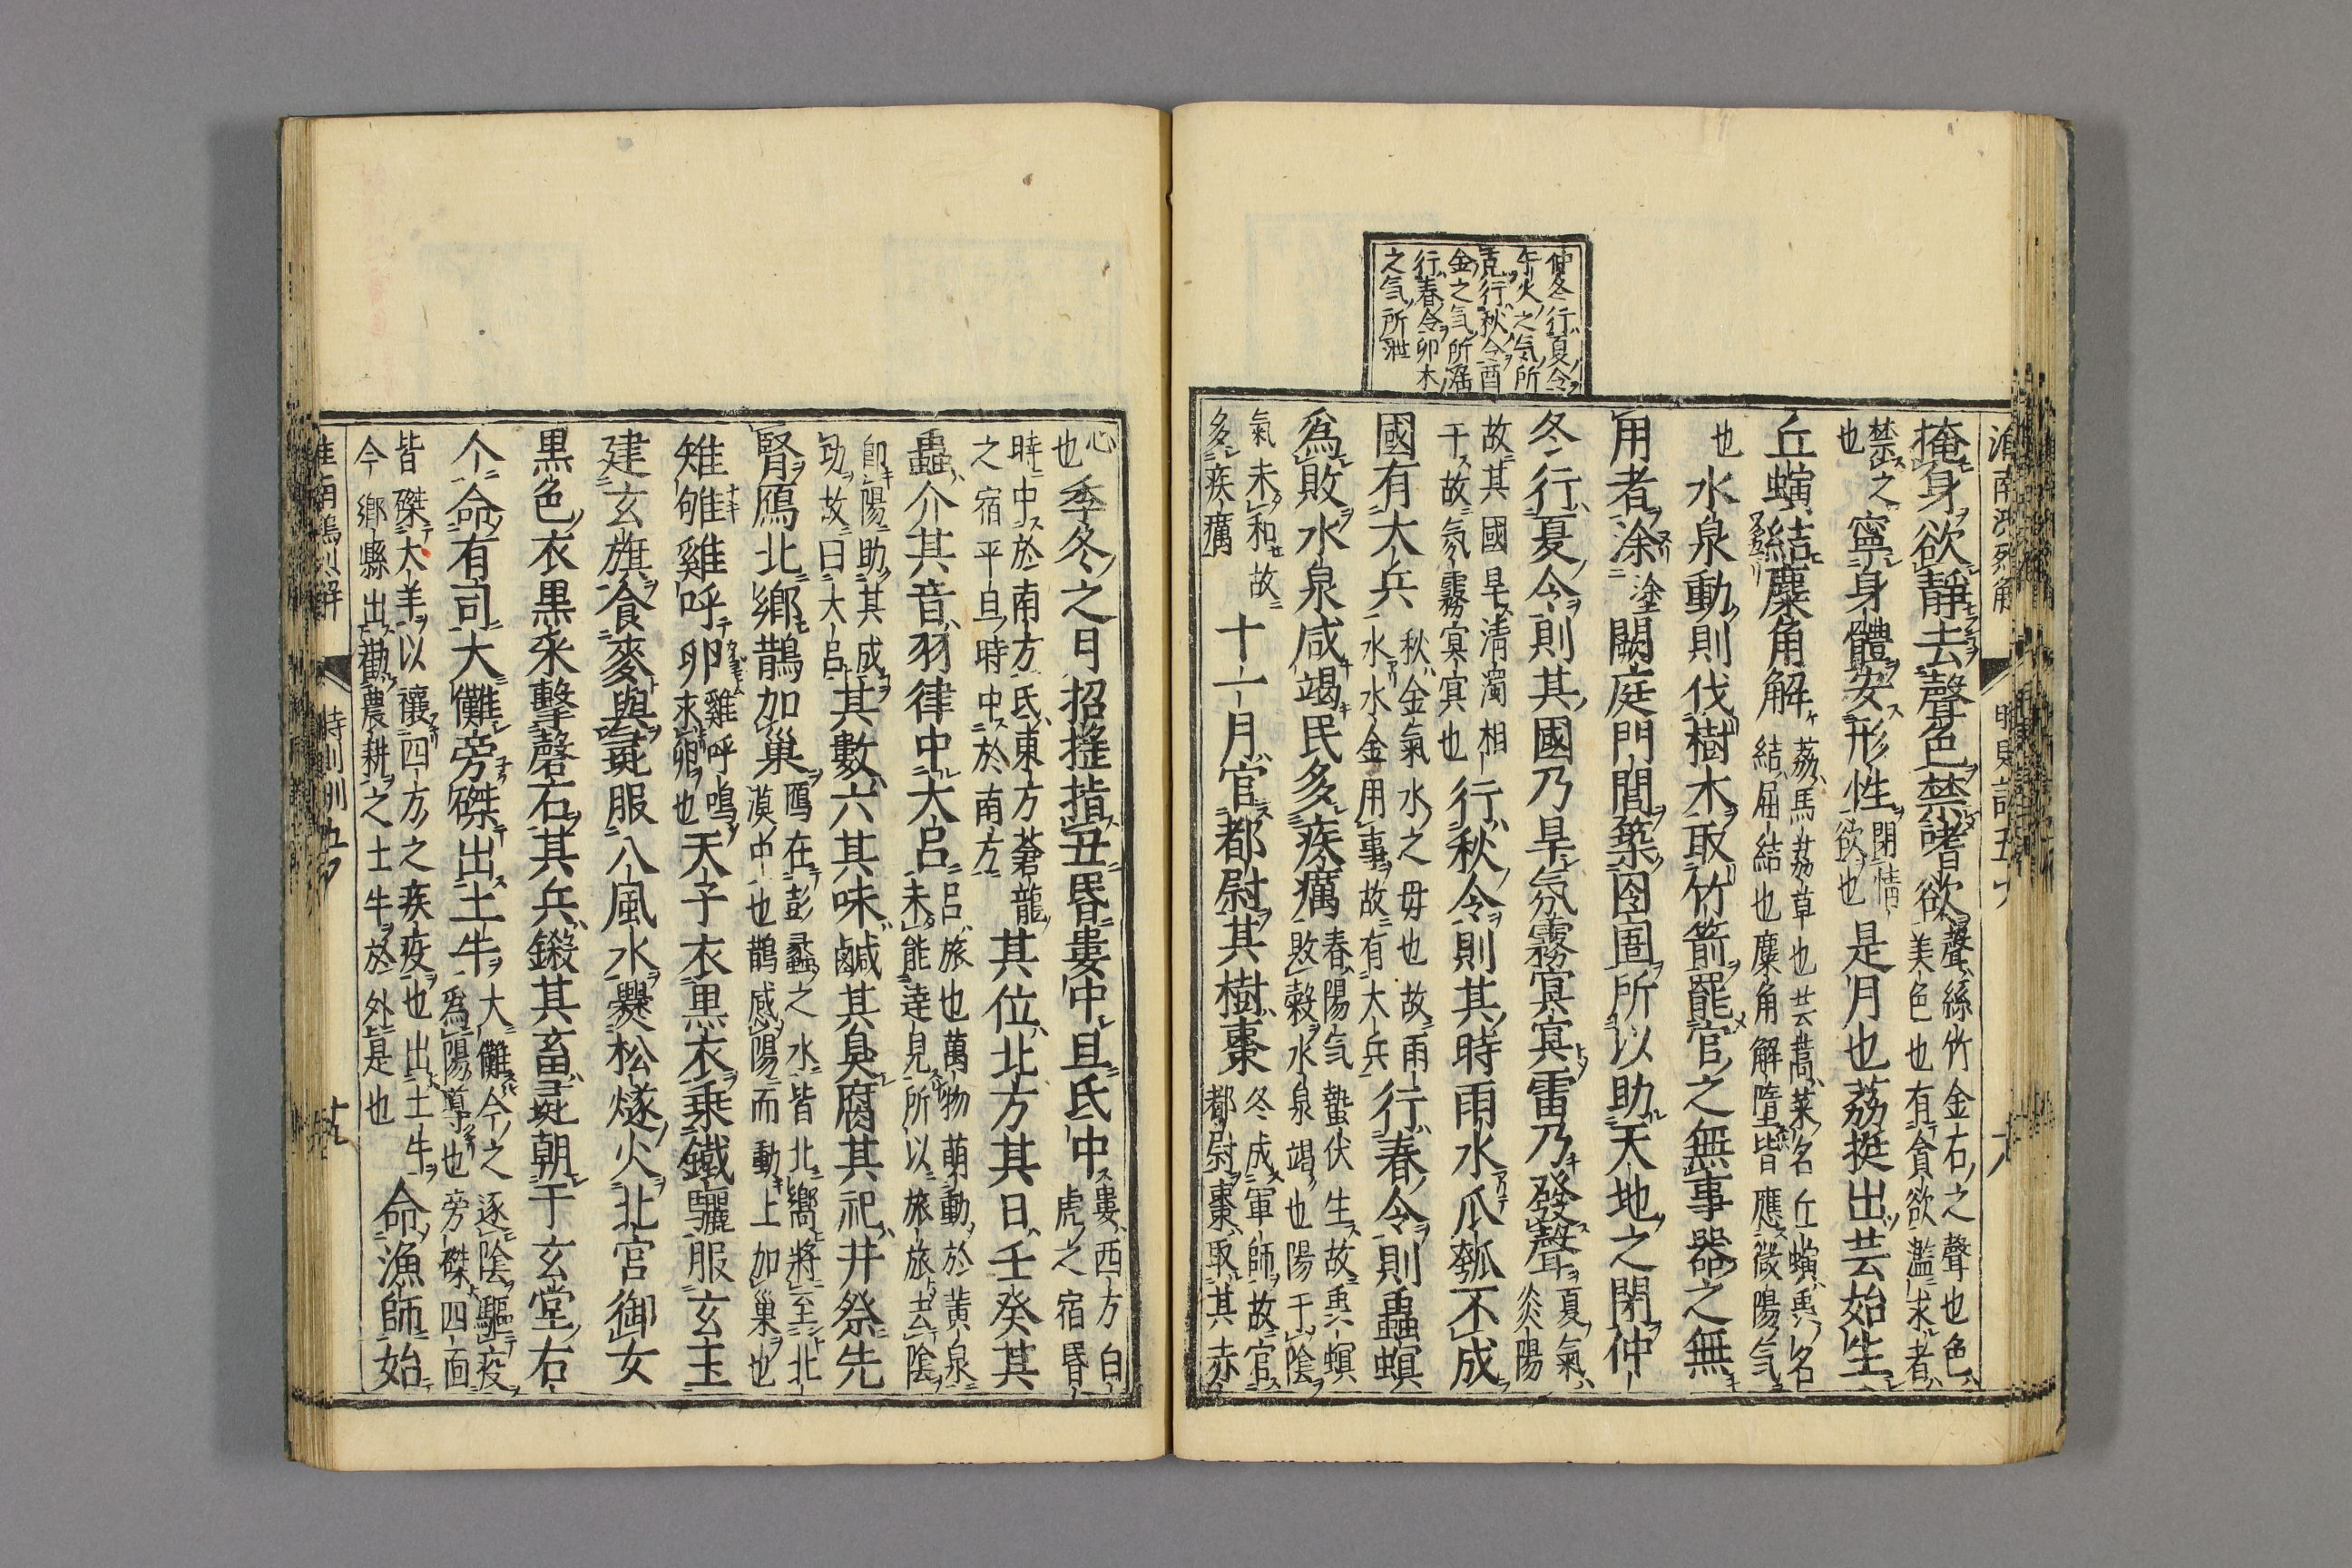 仲冬行夏令
午火之気所
克行秋令酉
金之気所淫
行春令卯木
之気所泄
掩身欲靜去聲色禁嗜欲聲絲竹金石之聲也色
美色也有貪欲濫求者
禁之
也寧身體安形性閉情
欲也是月也荔挺出芸始生
丘螾結麋角解荔馬荔草也芸蒿菜名丘螾蟲名
結屈結也麋角解墮皆應微陽気
也水泉動則伐樹木取竹箭罷官之無事器之無
用者涂塗闕庭門閭築囹圄所以助天地之閉仲
冬行夏令則其國乃旱氛霧冥冥雷乃發聲夏氣
炎陽
故其國旱清濁相
干故氛霧冥冥也行秋令則其時雨水瓜瓠不成
國有大兵秋金氣水之母也故雨
水水金用事故有大兵行春令則蟲螟
爲敗水泉咸竭民多疾癘春陽気蟄伏生故蟲螟
敗穀水泉竭也陽干陰
氣未和故
多疾癘十一月官都尉其樹棗冬成軍師故官
都尉棗取其赤
心
也季冬之月招搖指丑昏婁中旦氐中婁西方白
虎之宿昏
時中於南方氐東方蒼龍
之宿平旦時中於南方其位北方其日壬癸其
蟲介其音羽律中大呂呂旅也萬物萌動於黃泉
未能達見所以旅旅去陰
卽陽助其成
功故曰大呂其數六其味鹹其臭腐其祀井祭先
腎鴈北鄉鵲加巢鴈在彭蠡之水皆北嚮將至北
漠中也鵲感陽而動上加巢也
雉雊雞呼卵雞呼鳴
求卵也天子衣黒衣乗鐵驪服玄玉
建玄旗食麥與彘服八風水爨松燧火北宮御女
黒色衣黒采擊磬石其兵鎩其畜彘朝于玄堂右
个命有司大儺旁磔出土牛大儺今之逐陰驅疫
爲陽導也旁磔四面
皆磔犬羊以禳四方之疾疫也出土牛
今鄉縣出勸農耕之土牛於外是也命漁師始